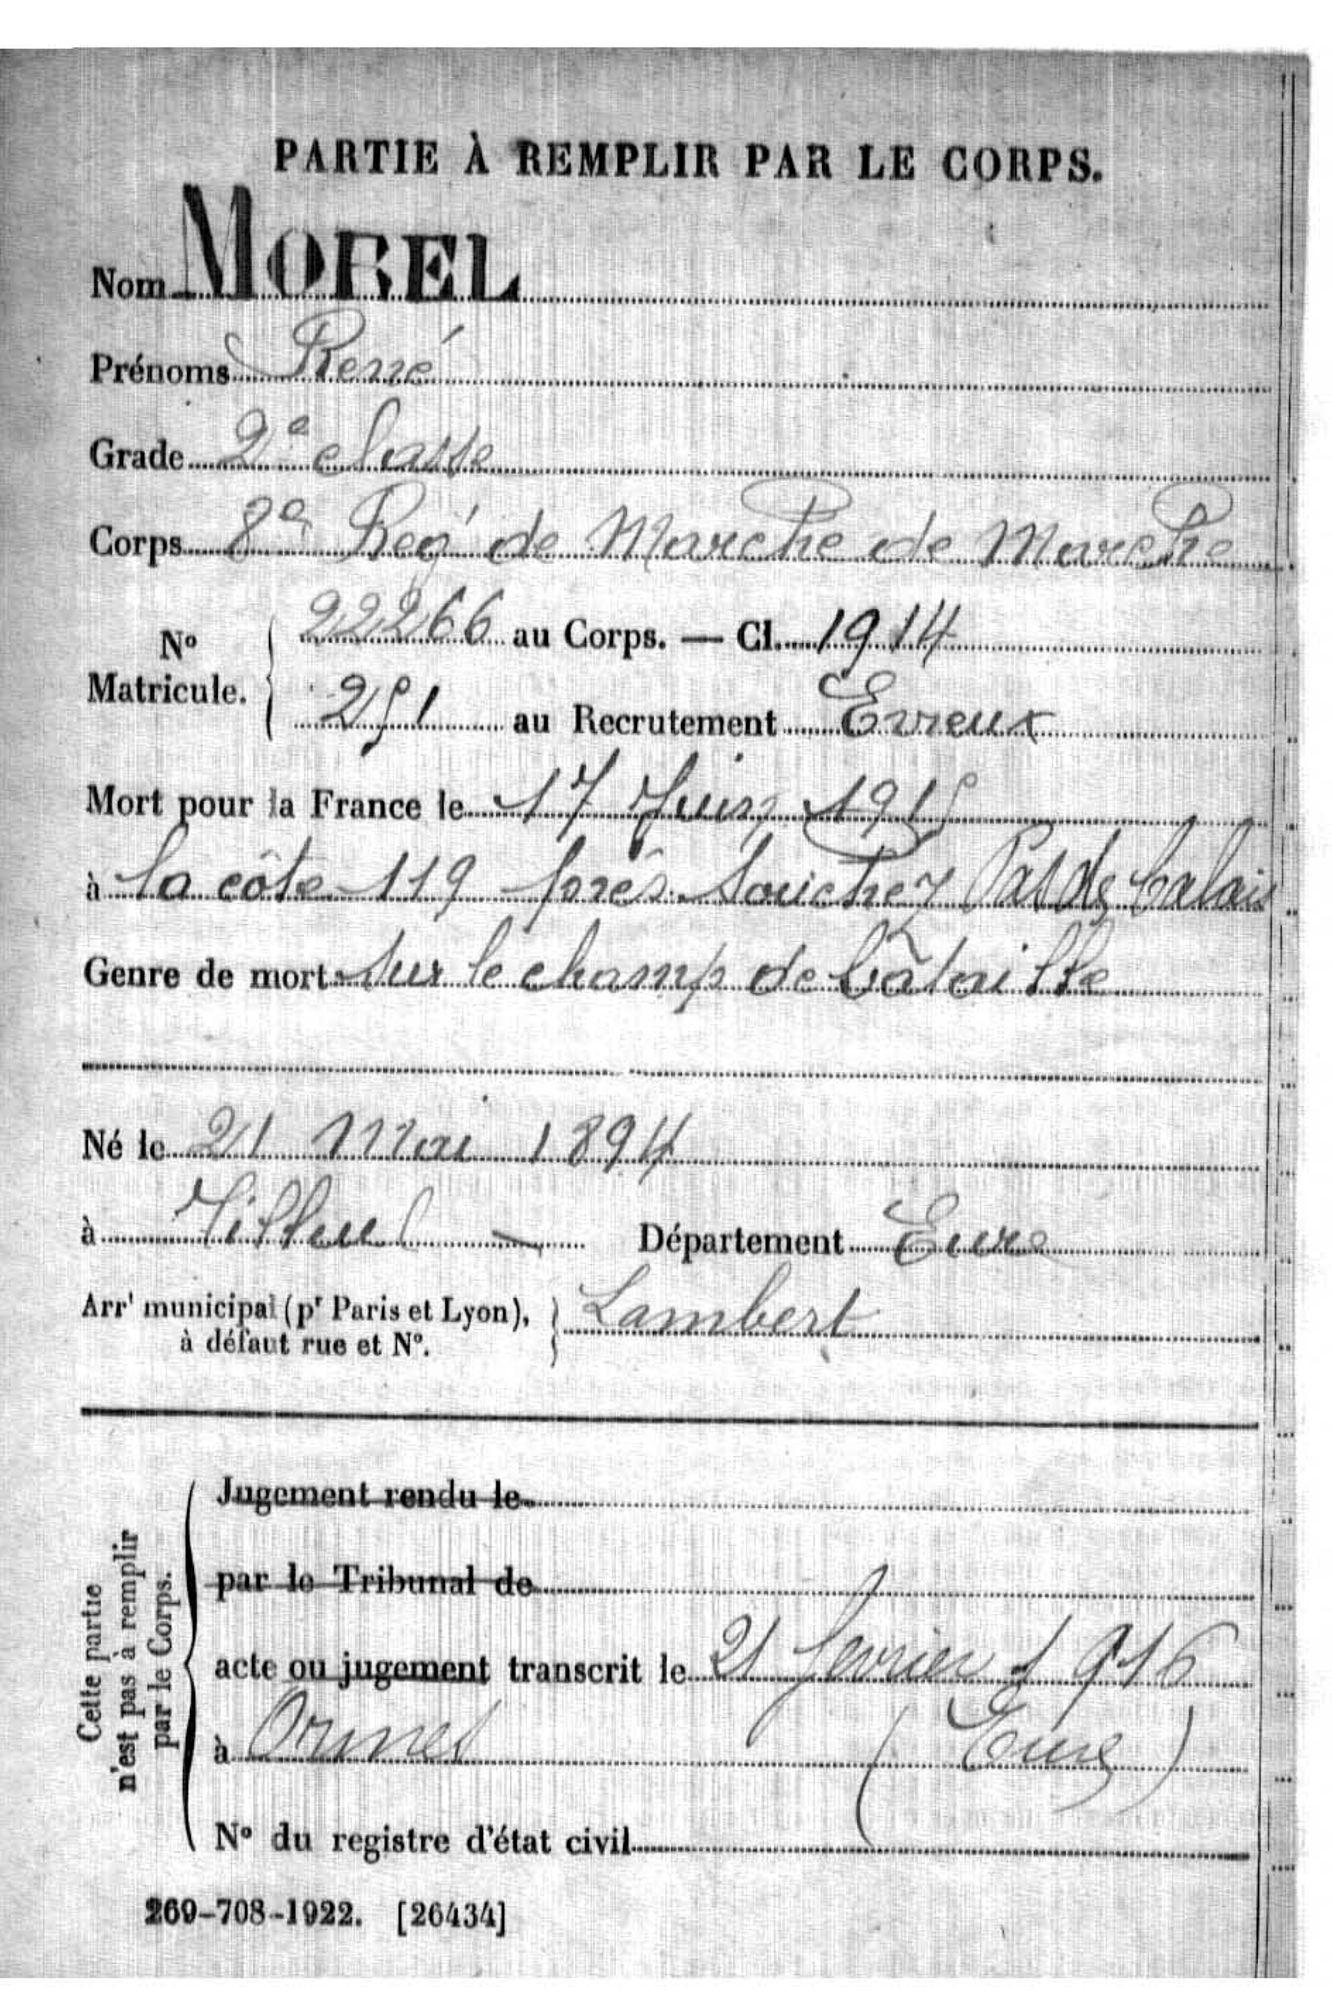 PARTIE À REMPLIR PAR LE CORPS.
Nom MOREL
Prénoms René
Grade 2e classe
Corps 8e Reg' de Marche de Marche
No Matricule. { 22266 au Corps. — Cl. 1914
251 au Recrutement Evreux
Mort pour la France le 17 Juin 1915
à la côte 119 près Souchez Pas de Calais
Genre de mort sur le champ de bataille
Né le 21 Mai 1894
à Tilleul — Département Eure
Arrt municipal (pr Paris et Lyon), à défaut rue et No. } Lambert
Cette partie n'est pas à remplir par le Corps.
Jugement rendu le
par le Tribunal de
acte ou jugement transcrit le 21 fevrier 1916
à Ormes (Eure)
No du registre d'état civil
269-708-1922. [26434]